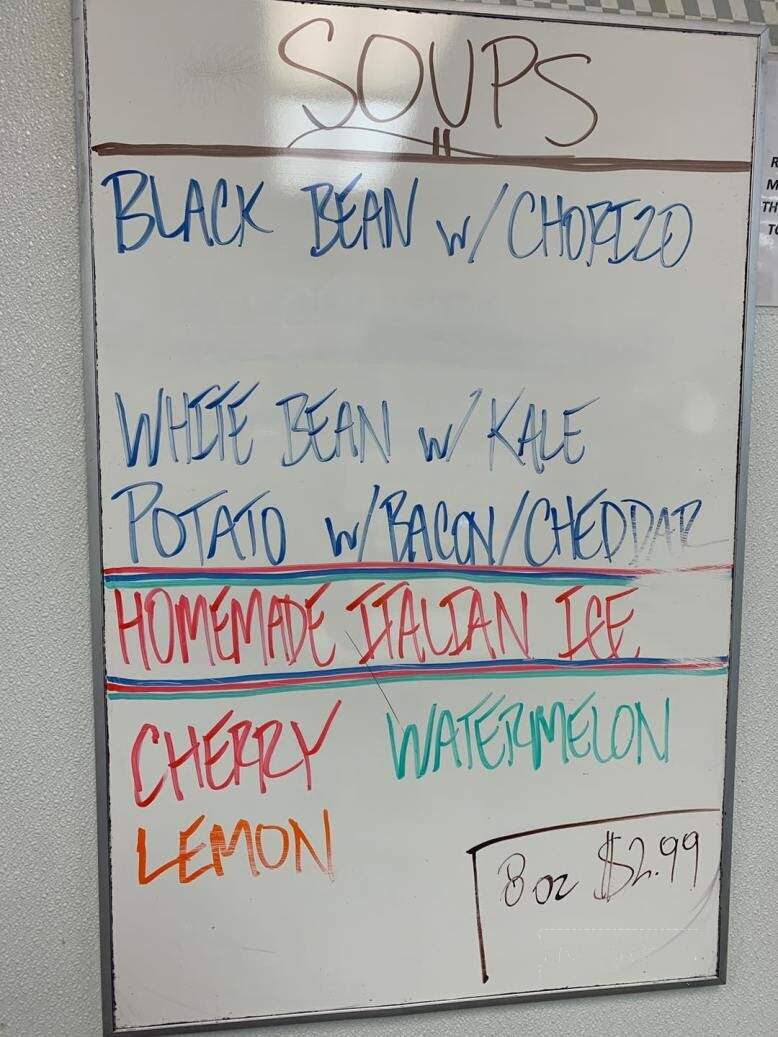 SOUPS
BLACK BEAN w/ CHORIZO
WHITE BEAN w/ KALE
POTATO w/ BACON/CHEDDAR
HOMEMADE ITALIAN ICE
CHERRY WATERMELON
LEMON
8 oz $2.99